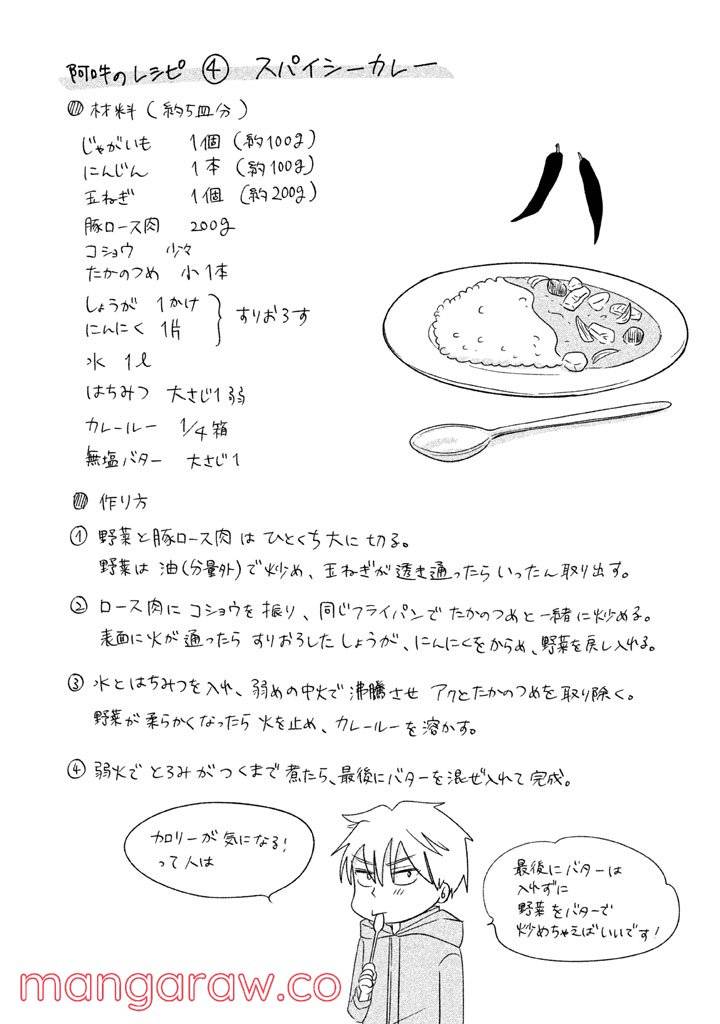 阿吽のレシピ ④ スパイシーカレー
材料(約5皿分)
じゃがいも 1個(約100g)
にんじん 1本(約100g)
玉ねぎ 1個(約200g)
豚ロース肉 200g
コショウ 少々
たかのつめ 小1本
しょうが 1かけ
にんにく 1片
すりおろす
水 1ℓ
はちみつ 大さじ1弱
カレールー 1/4箱
無塩バター 大さじ1
作り方
① 野菜と豚ロース肉はひとくち大に切る。
野菜は油(分量外)で炒め、玉ねぎが透き通ったらいったん取り出す。
② ロース肉にコショウを振り、同じフライパンでたかのつめと一緒に炒める。
表面に火が通ったらすりおろしたしょうが、にんにくをからめ、野菜を戻し入れる。
③ 水とはちみつを入れ、弱めの中火で沸騰させアクとたかのつめを取り除く。
野菜が柔らかくなったら火を止め、カレールーを溶かす。
④ 弱火でとろみがつくまで煮たら、最後にバターを混ぜ入れて完成。
カロリーが気になる!
って人は
最後にバターは
入れずに
野菜をバターで
炒めちゃえばいいです!
mangaraw.co